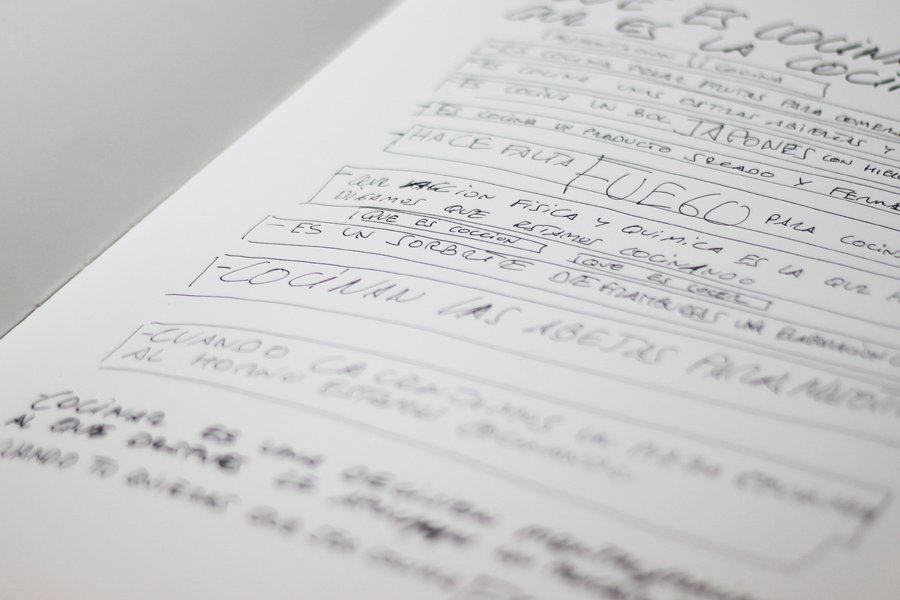 QUE ES COCINA
QUE ES LA COCI
COCINA
ES COCINA PELAR FRUTAS PARA COMER
ES COCINA UNAS OSTRAS ABIERTAS Y
ES COCINA UN BOL JAPONES CON HIELO
ES COCINA UN PRODUCTO SECADO Y FERME
HACE FALTA FUEGO PARA COCIN
- QUE ACCION FISICA Y QUIMICA ES LA QUE H
DIGAMOS QUE ESTAMOS COCINANDO
QUE ES COCCION QUE ES COCER
- ES UN SORBETE DE FRAMBUESAS UNA ELABORACION
- COCINAN LAS ABEJAS PARA
- CUANDO CALENTAMOS UN PIZZA
AL HORNO ESTAMOS COCINANDO
COCINAR ES UNA DECISION
AL QUE DESPUES LE
CUANDO TU QUIERAS QUE SEA